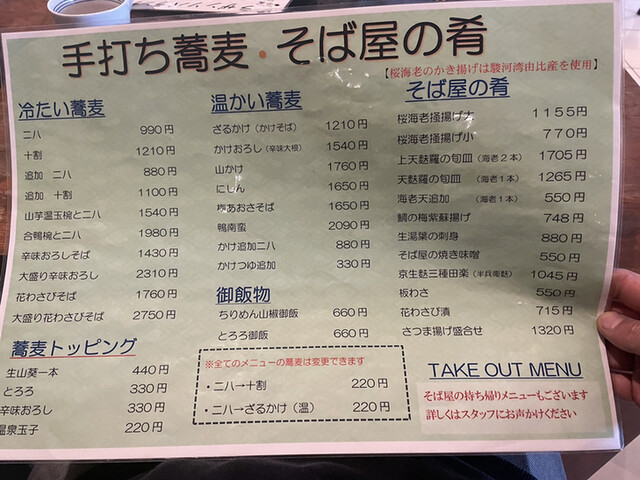 手打ち蕎麦・そば屋の肴
【桜海老のかき揚げは駿河湾由比産を使用】
冷たい蕎麦
二八 990円
十割 1210円
追加 二八 880円
追加 十割 1100円
山芋温玉椀と二八 1540円
合鴨椀と二八 1980円
辛味おろしそば 1430円
大盛り辛味おろし 2310円
花わさびそば 1760円
大盛り花わさびそば 2750円
蕎麦トッピング
生山葵一本 440円
とろろ 330円
辛味おろし 330円
温泉玉子 220円
温かい蕎麦
ざるかけ(かけそば) 1210円
かけおろし(辛味大根) 1540円
山かけ 1760円
にしん 1650円
梅あおさそば 1650円
鴨南蛮 2090円
かけ追加二八 880円
かけつゆ追加 330円
御飯物
ちりめん山椒御飯 660円
とろろ御飯 660円
※全てのメニューの蕎麦は変更できます
・二八→十割 220円
・二八→ざるかけ(温) 220円
そば屋の肴
桜海老掻揚げ大 1155円
桜海老掻揚げ小 770円
上天麩羅の旬皿(海老2本) 1705円
天麩羅の旬皿(海老1本) 1265円
海老天追加(海老1本) 550円
鯛の梅紫蘇揚げ 748円
生湯葉の刺身 880円
そば屋の焼き味噌 550円
京生麩三種田楽(半兵衛麩) 1045円
板わさ 550円
花わさび漬 715円
さつま揚げ盛合せ 1320円
TAKE OUT MENU
そば屋の持ち帰りメニューもございます
詳しくはスタッフにお声かけください